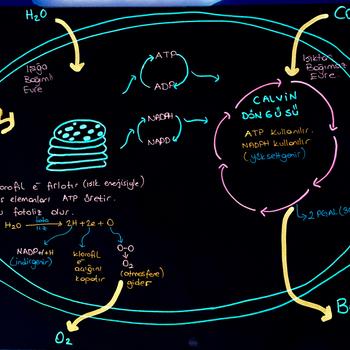 H₂O
CO
Işığa
Bağımlı
Evre
ATP
ADP
Işıktan
Bağımsız
Evre
NADPH
NADP
CALVİN
DÖNGÜSÜ
ATP kullanılır.
NADPH kullanılır
(yükseltgenir)
lorofil e⁻ fırlatır (ışık enerjisiyle)
s elemanları ATP üretir.
u fotoliz olur.
H₂O foto liz 2H + 2e + O
NADP e/H
(indirgenir)
klorofil
e⁻
açığını
kapatır
O-O
O₂
(atmosfere)
gider
2 PGAL (3
O₂
B